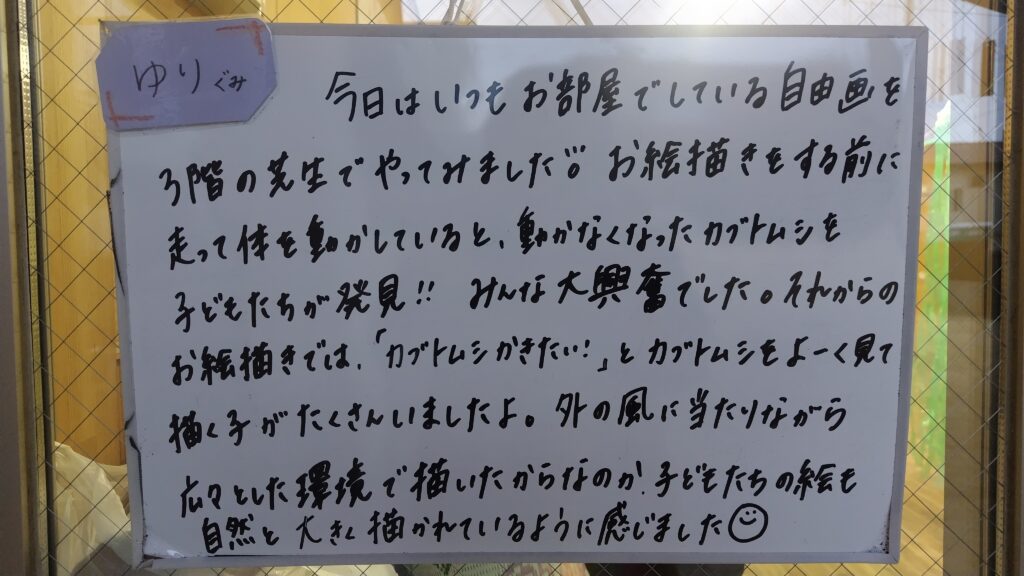 ゆりぐみ
今日はいつもお部屋でしている自由画を
3階の芝生でやってみました!!。お絵描きをする前に
走って体を動かしていると、動かなくなったカブトムシを
子どもたちが発見!! みんな大興奮でした。それからの
お絵描きでは、「カブトムシかきたい!」とカブトムシをよーく見て
描く子がたくさんいましたよ。外の風に当たりながら
広々とした環境で描いたからなのか、子どもたちの絵も
自然と大きく描かれているように感じました☺